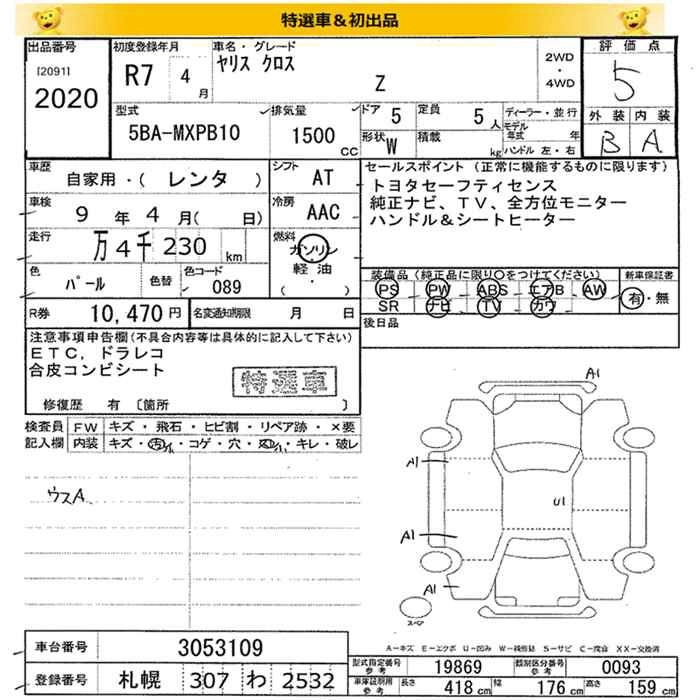 特選車＆初出品
出品番号
[2091]
2020
初度登録年月
R7 4月
車名・グレード
ヤリス クロス
Z
2WD
・
4WD
評価点
5
外装 内装
B A
型式
5BA-MXPB10
排気量
1500 CC
ドア 5
定員 5人
形状 W
積載 kg
ディーラー・並行
モデル年式 年
ハンドル 左・右
車歴
自家用・( レンタ )
シフト AT
車検
9年 4月( 日)
冷房 AAC
走行
万4千230 km
燃料
ガソリン
軽油
・
( )
色
パール
色替
色コード
089
R券 10,470円
名変通知期限 月 日
セールスポイント (正常に機能するものに限ります)
トヨタセーフティセンス
純正ナビ、TV、全方位モニター
ハンドル＆シートヒーター
装備品 (純正品に限り○をつけてください)
PS PW ABS エアB AW
SR ナビ TV カワ
新車保証書
有・無
後日品
注意事項申告欄 (不具合内容等は具体的に記入して下さい)
ETC、ドラレコ
合皮コンビシート
特選車
修復歴 有 [箇所 ]
検査員 FW キズ・飛石・ヒビ割・リペア跡・×要
記入欄 内装 キズ・汚・コゲ・穴・・キレ・破レ
ウスA
A1
A1
U1
A1
A1
スペア
A－キズ E－エクボ U－凹み W－補修跡 S－サビ C－腐食 XX－交換済
車台番号 3053109
登録番号 札幌 307 わ 2532
型式指定番号 参考 19869
類別区分番号 参考 0093
車庫証明用 参考 長さ 418cm 幅 176cm 高さ 159cm